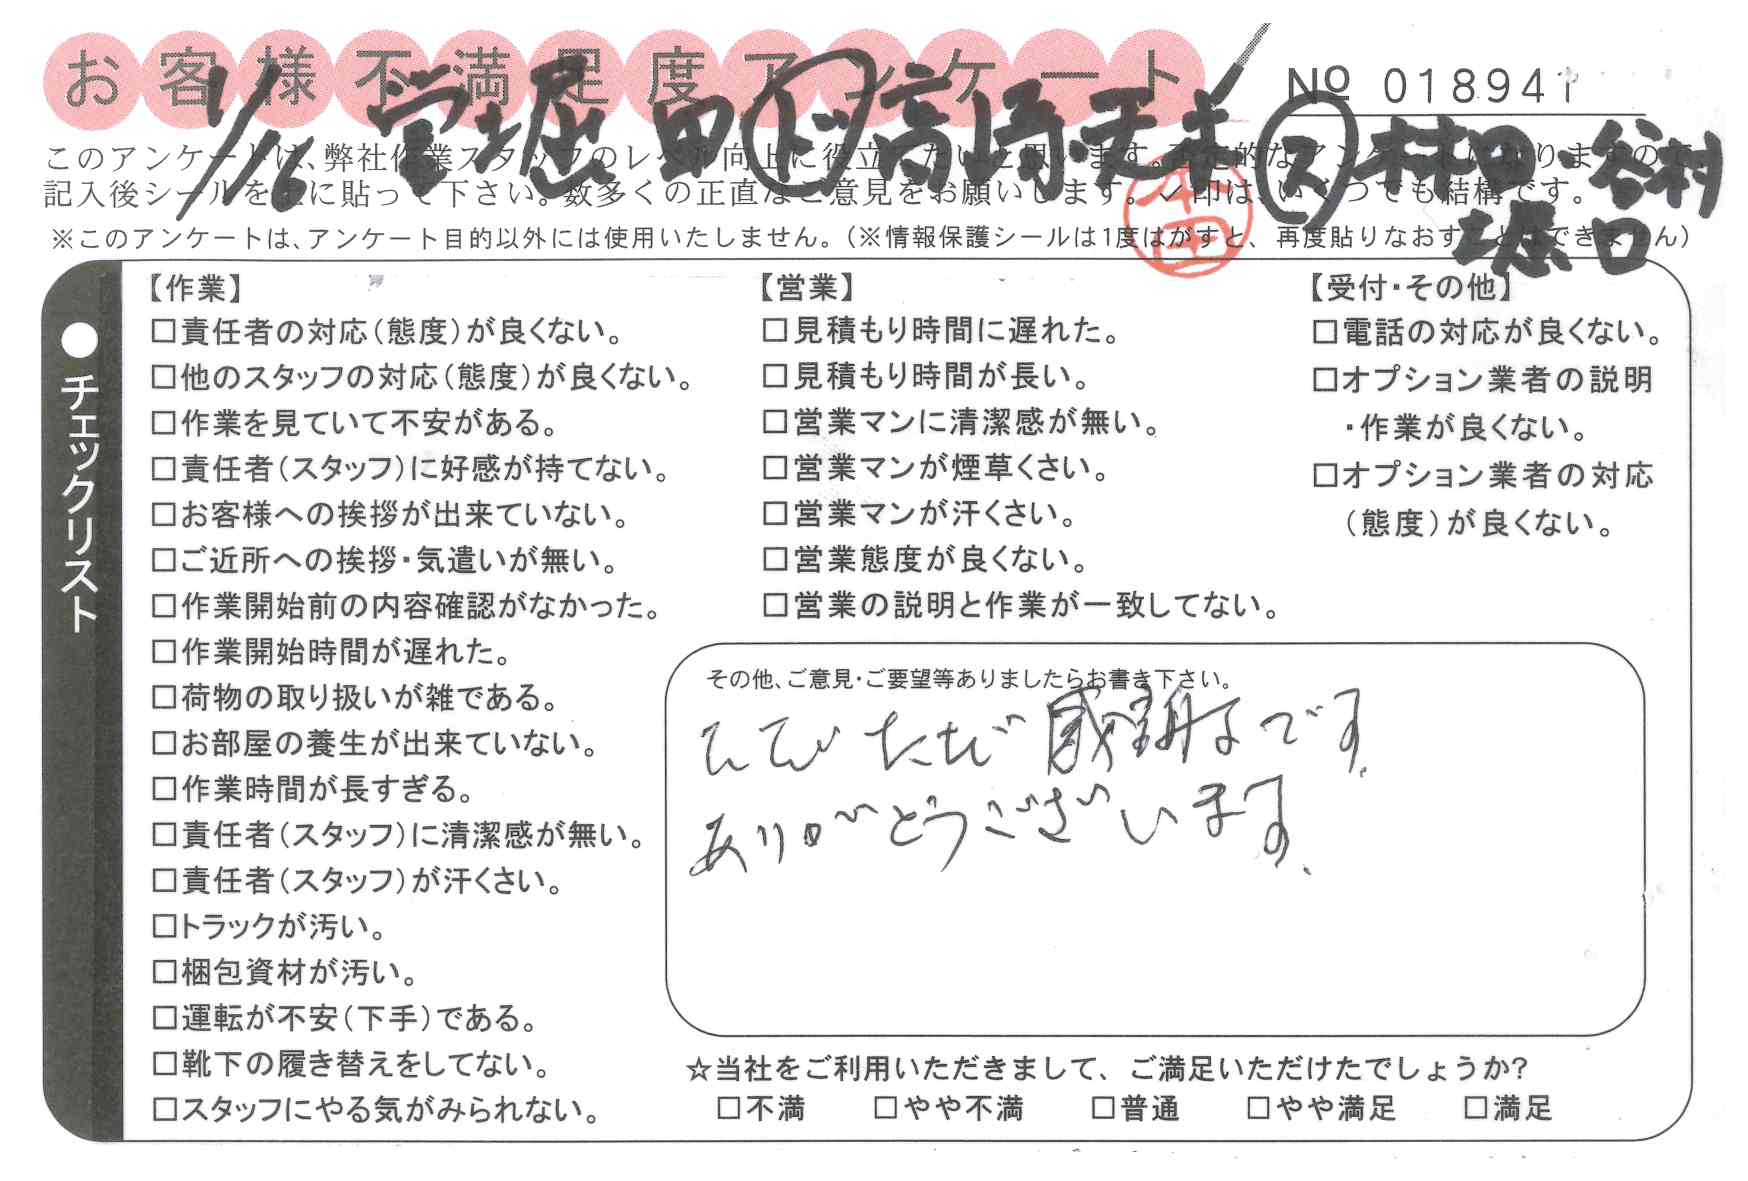 お客様不満足度アンケート
No 018941
1/16 営 堀田 ド 高崎 天来 ス 林田・谷村
堀口
このアンケートは、弊社作業スタッフのレベル向上に役立てたいと思います。否定的なアンケートになりますので、
記入後シールを上に貼って下さい。数多くの正直なご意見をお願いします。✓印は、いくつでも結構です。
※このアンケートは、アンケート目的以外には使用いたしません。（※情報保護シールは1度はがすと、再度貼りなおすことはできません）
本田
●チェックリスト
【作業】
□責任者の対応（態度）が良くない。
□他のスタッフの対応（態度）が良くない。
□作業を見ていて不安がある。
□責任者（スタッフ）に好感が持てない。
□お客様への挨拶が出来ていない。
□ご近所への挨拶・気遣いが無い。
□作業開始前の内容確認がなかった。
□作業開始時間が遅れた。
□荷物の取り扱いが雑である。
□お部屋の養生が出来ていない。
□作業時間が長すぎる。
□責任者（スタッフ）に清潔感が無い。
□責任者（スタッフ）が汗くさい。
□トラックが汚い。
□梱包資材が汚い。
□運転が不安（下手）である。
□靴下の履き替えをしてない。
□スタッフにやる気がみられない。
【営業】
□見積もり時間に遅れた。
□見積もり時間が長い。
□営業マンに清潔感が無い。
□営業マンが煙草くさい。
□営業マンが汗くさい。
□営業態度が良くない。
□営業の説明と作業が一致してない。
【受付・その他】
□電話の対応が良くない。
□オプション業者の説明
・作業が良くない。
□オプション業者の対応
（態度）が良くない。
その他、ご意見・ご要望等ありましたらお書き下さい。
ただ感謝です。
ありがとうございます。
☆当社をご利用いただきまして、ご満足いただけたでしょうか?
□不満 □やや不満 □普通 □やや満足 □満足